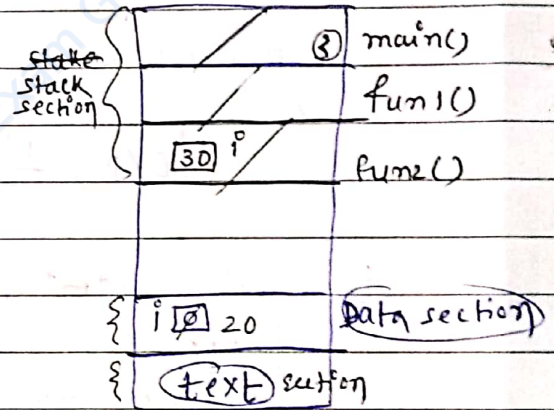 main()
stack
section
fun1()
30 i
fun2()
i 0 20 Data section
text section